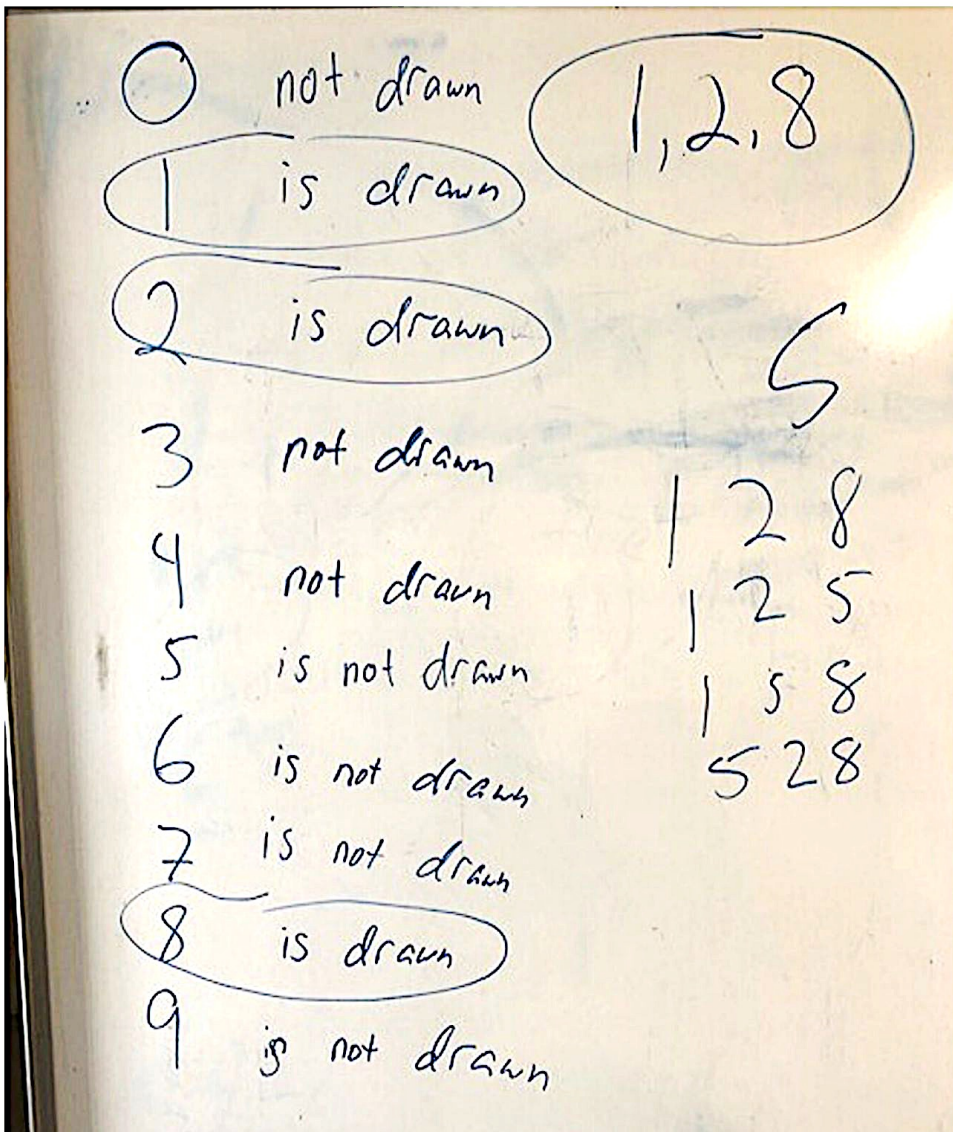 0 not drawn
1 is drawn
2 is drawn
3 not drawn
4 not drawn
5 is not drawn
6 is not drawn
7 is not drawn
8 is drawn
9 is not drawn
1,2,8
5
1 2 8
1 2 5
1 5 8
5 2 8